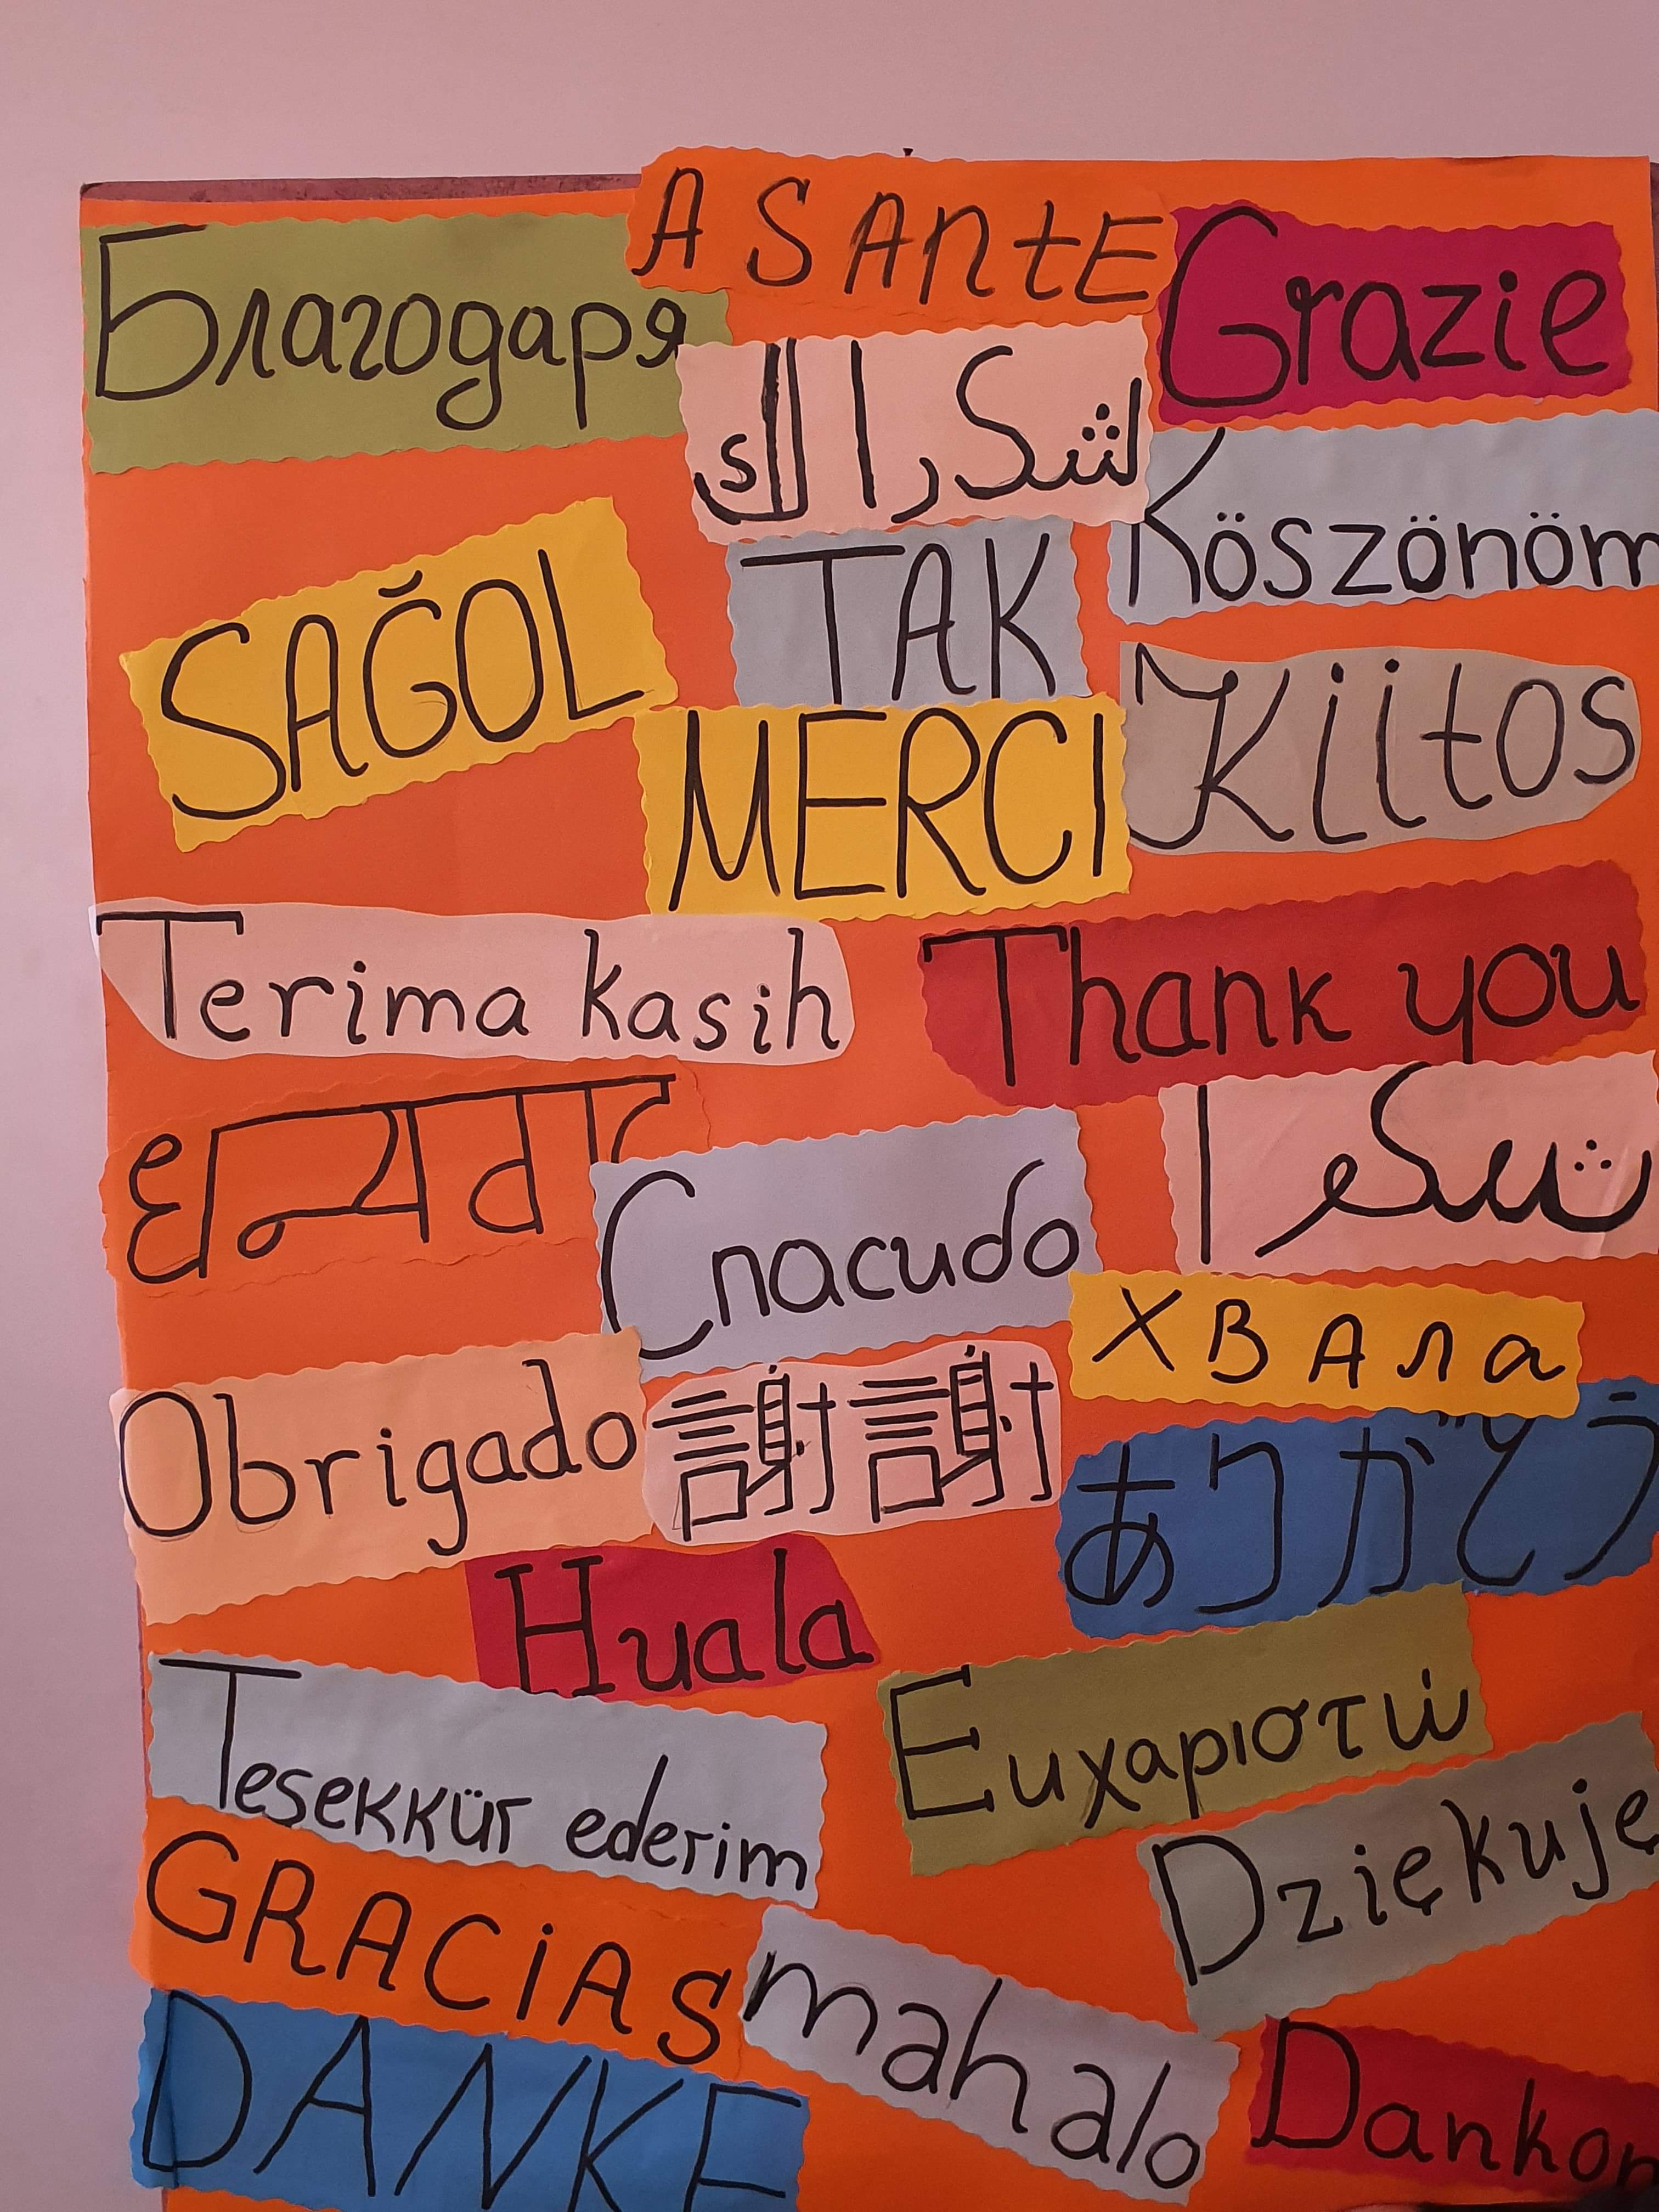 ASAntE
Благодаря
Grazie
شكرا لك
Köszönöm
SAĞOL
TAK
Kiitos
MERCI
Terima kasih
Thank you
धन्यवाद
شكرا
Спасибо
ХВАла
Obrigado
謝謝
ありがとう
Huala
Tesekkür ederim
Euχαριστώ
Dziękuję
GRACiAS
mahalo
DANKE
Dankon